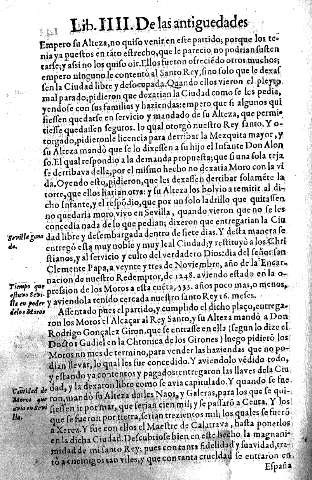 Lib. IIII. De las antiguedades
Empero su Alteza, no quiso venir en este partido; porque los te-
nia ya puestos en tan estrecho, que le parecio no podrian susten
tarse; y assi no los quiso oir. Ellos fueron ofreciẽdo otros muchos;
empero ninguno le contentò al Santo Rey, sino solo que le dexas-
sen la Ciudad libre y desocupada. Quando ellos vieron el pleyto
mal parado; pidieron que dexarian la Ciudad como se les pedia,
yendose con sus familias y haziendas: empero que si algunos qui
siessen quedarse en servicio y mandado de su Alteza, que permi-
tiesse quedassen seguros. lo qual otorgò nuestro Rey Santo. Y o-
torgado, pidieronle licencia para derribar la Mezquita mayor, y
su Alteza mandò que se lo dixessen a su hijo el Infante Don Alon
so. El qual respondio a la demanda propuesta; que si una sola teja
se derribava della, por el mismo hecho no dexaria Moro con la vi
da. Oyendo esto, pidieron, que les dexassen derribar solamẽte la
torre, que ellos harian otra: y su Alteza los bolvio a remitir al di
cho Infante, y el respõdio, que por un solo ladrillo que quitassen
no quedaria moro vivo en Sevilla, quando vieron que no se les
concedia nada de lo que pedian; dixeron que entregarian la Ciu
Sevilla gana da.
dad libre y desembargada dentro de siete dias. Y desta manera se
entregò esta muy noble y muy leal Ciudad; y restituyò a los Chri
stianos, y al servicio y culto del verdadero Dios: dia del señor san
Clemente Papa, a veynte y tres de Noviembre, año de la Encar-
nacion de nuestro Redemptor, de 1248. aviendo estado en la o-
Tiempo que estuvo Sevilla en poder de los Moros
presion de los Moros a esta cuẽta, 533. años poco mas, o menos,
y aviendola tenido cercada nuestro santo Rey 16. meses.
Assentado pues el partido, y cumplido el dicho plaço, entrega-
ron los Moros el Alcaçar al Rey Santo, y su Alteza mandò a Don
Rodrigo Gonçalez Giron, que se entrasse en ella (segun lo dize el
Doctor Gudiel en la Chronica de los Girones) luego pidierõ los
Moros un mes de termino, para vender las haziendas que no po-
dian llevar, lo qual les fue concedido. Y aviendolo vẽdido todo,
y estando ya contentos y pagados; entregaron las llaves dela Ciu
Cantidad de Moros que avia en Sevilla.
dad, y la dexaron libre como se avia capitulado. Y quando se fue
ron, mandò su Alteza dalles Naos, y Galeras, para los que se qui-
siessen ir por mar, que serian cien mil; y se passarõ a Ceuta. Y los
que se fueron por tierra, serian trezientos mil; los quales se fuerõ
a Xerez. Y fue con ellos el Maestre de Calatrava, hasta ponellos
en la dicha Ciudad. Descubriose bien en este hecho la magnani-
midad de mi santo Rey; pues con tanta fidelidad y suavidad, tra-
tò a enemigos tan viles, y que con tanta crueldad se entraron en
España